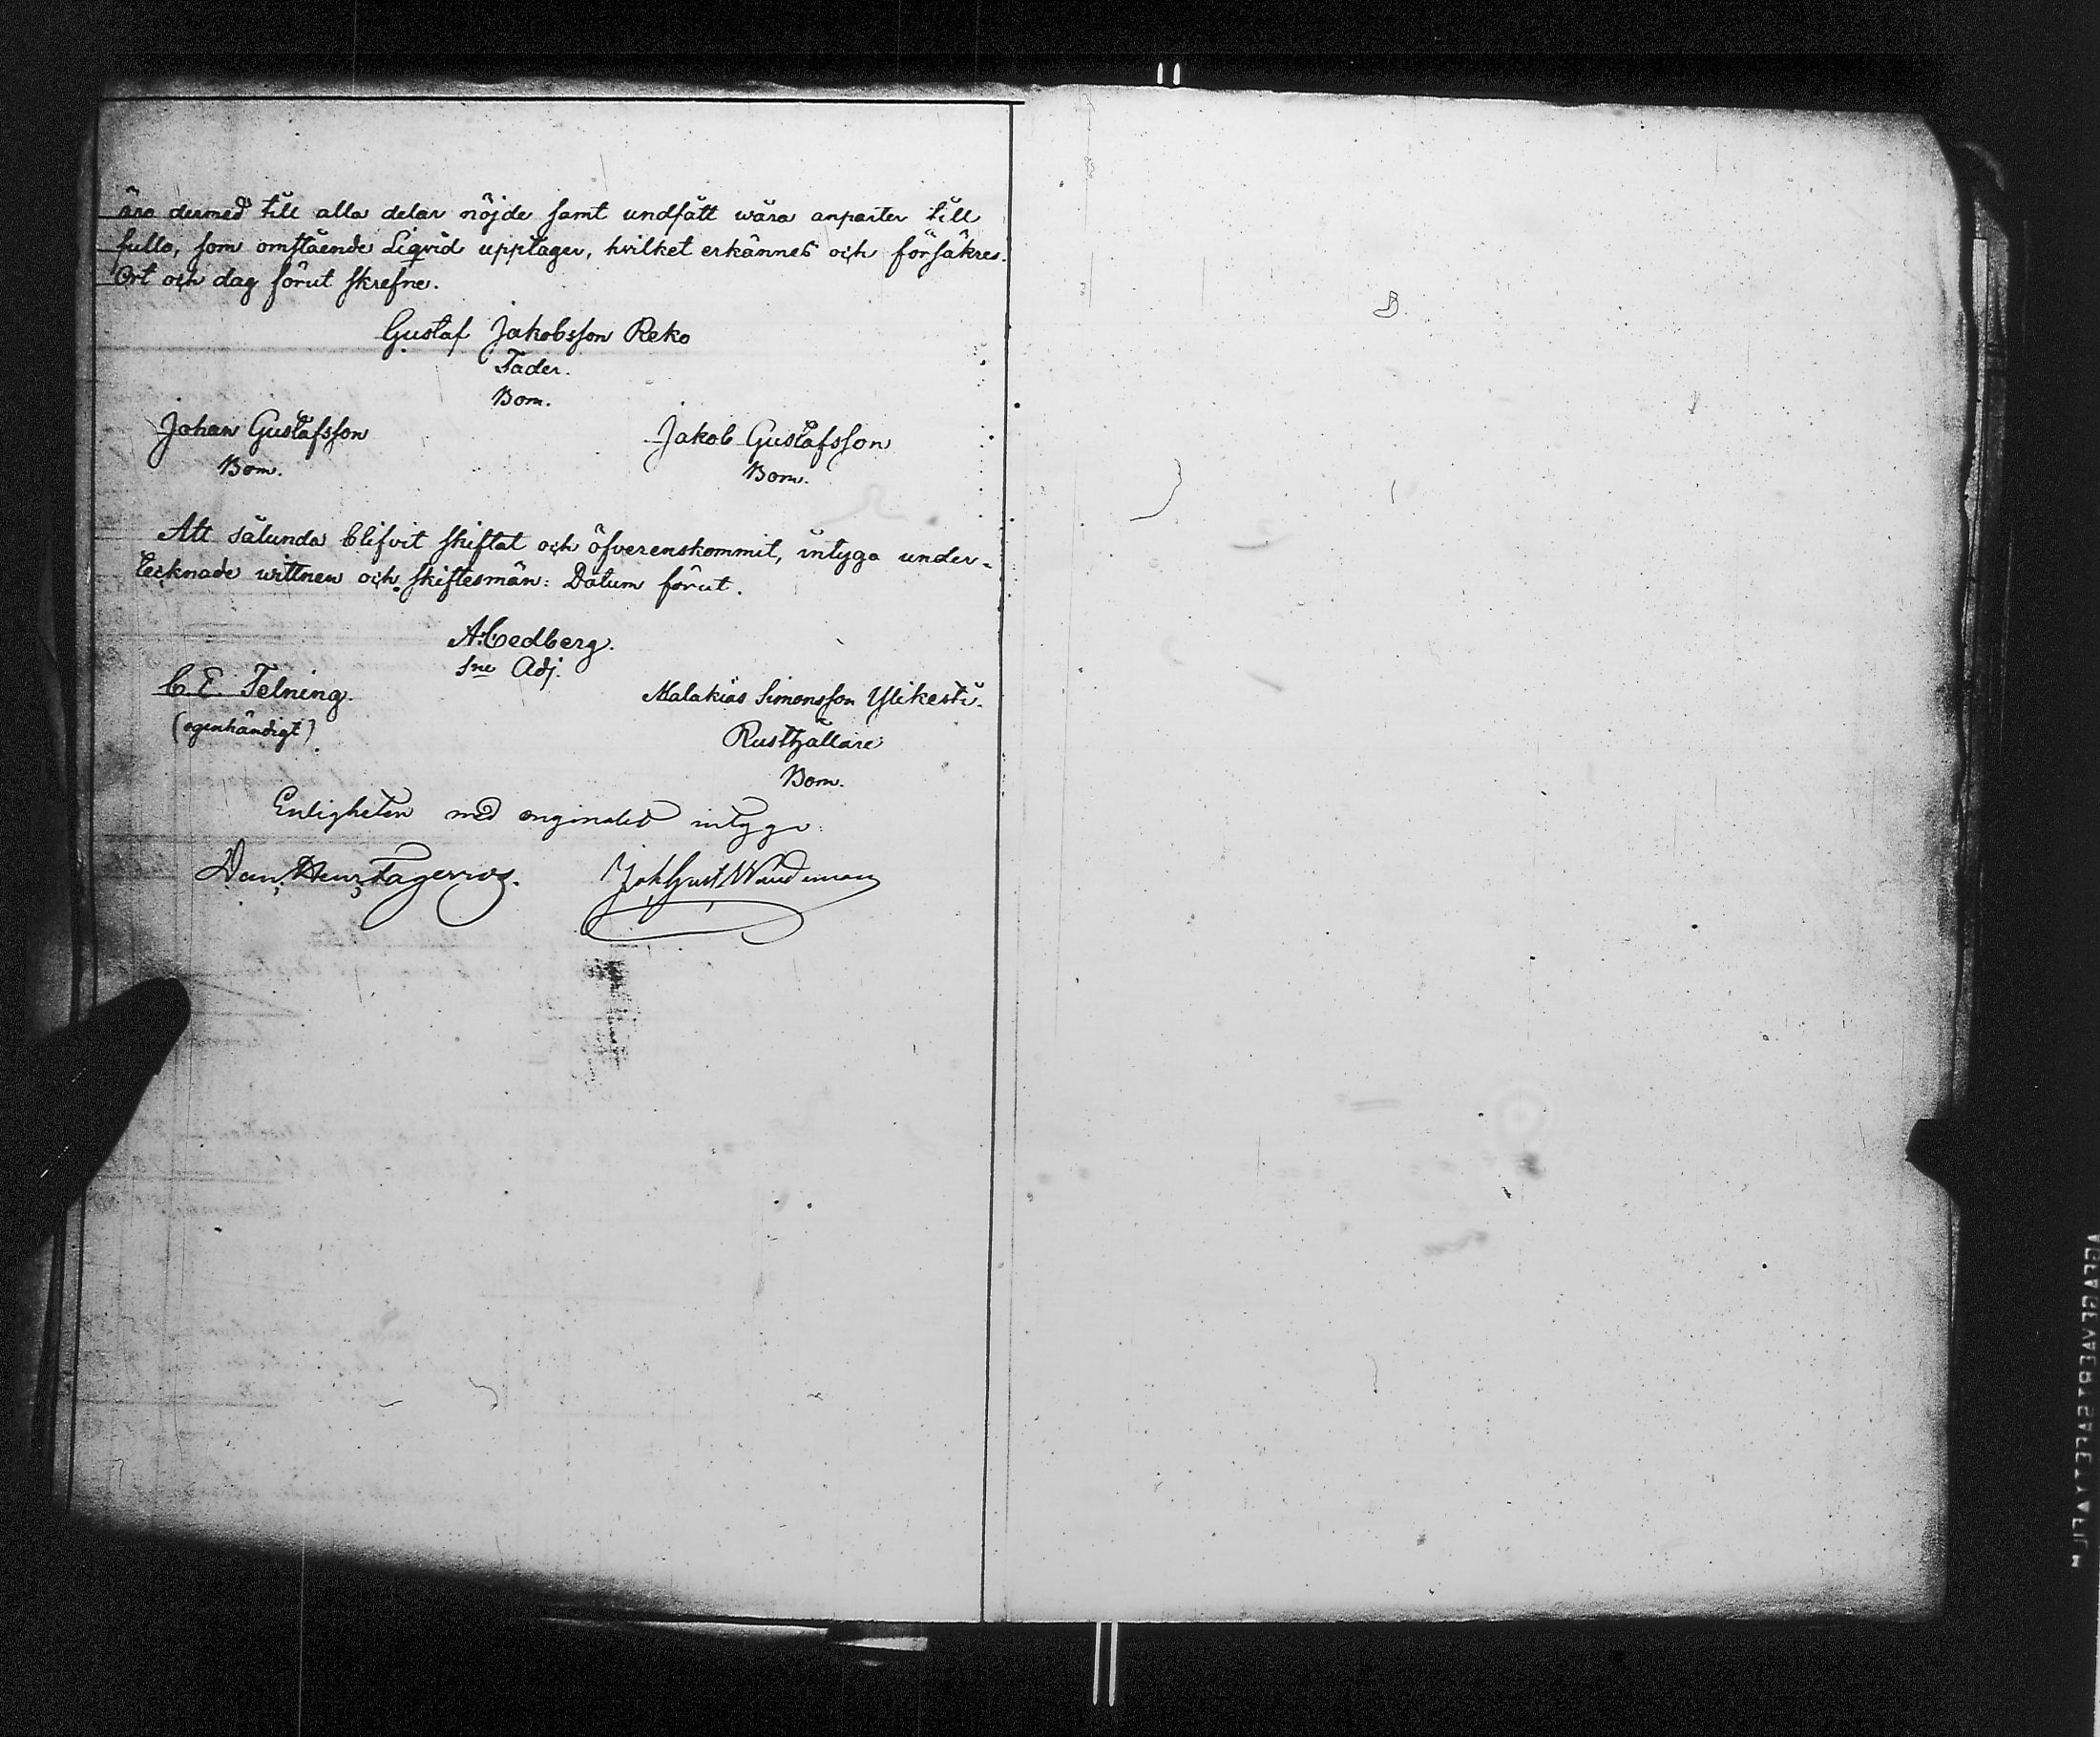 äro dermed till alla delar nöjde samt undfått wåra anparter till
fullo, som omstående Liqvid upptager, hvilket erkännes och försäkres.
Ort och dag förut skrefne.
Gustaf Jakobsson Reko
Fader.
Bom.
Johan Gustafsson
Jakob Gustafsson
Bom.
Bom.
Att sålunda blifvit skiftat och öfverenskommit, intyga under-
tecknade wittnen och skiftesmän: Datum förut.
A. Cedberg.
Sne Adj.
C. E. Telning.
Malakias Simonsson Ylikesti.
(egenhändigt)
Rusthållare
Bom.
Enligheten med originalet intyga:
Dan. Henr. Fagerroos.
Joh Gust Wändeman